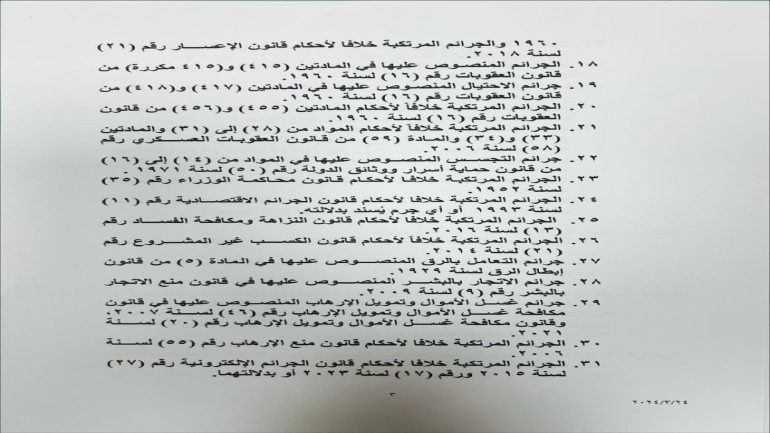 ١٩٦٠ والجرائم المرتكبة خلافاً لأحكام قانون الإعسار رقم (٢١)
لسنة ٢٠١٨.
١٨. الجرائم المنصوص عليها في المادتين (٤١٥) و(٤١٥ مكررة) من
قانون العقوبات رقم (١٦) لسنة ١٩٦٠.
١٩. جرائم الاحتيال المنصوص عليها في المادتين (٤١٧) و(٤١٨) من
قانون العقوبات رقم (١٦) لسنة ١٩٦٠.
٢٠. الجرائم المرتكبة خلافاً لأحكام المادتين (٤٥٥) و(٤٥٦) من قانون
العقوبات رقم (١٦) لسنة ١٩٦٠.
٢١. الجرائم المرتكبة خلافاً لأحكام المواد من (٢٨) إلى (٣١) والمادتين
(٣٣) و(٣٤) والمادة (٥٩) من قانون العقوبات العسكري رقم
(٥٨) لسنة ٢٠٠٦.
٢٢. جرائم التجسس المنصوص عليها في المواد من (١٤) إلى (١٦)
من قانون حماية أسرار ووثائق الدولة رقم (٥٠) لسنة ١٩٧١.
٢٣. الجرائم المرتكبة خلافاً لأحكام قانون محاكمة الوزراء رقم (٣٥)
لسنة ١٩٥٢.
٢٤. الجرائم المرتكبة خلافاً لأحكام قانون الجرائم الاقتصادية رقم (١١)
لسنة ١٩٩٣ أو أي جرم يُسند بدلالته.
٢٥. الجرائم المرتكبة خلافاً لأحكام قانون النزاهة ومكافحة الفساد رقم
(١٣) لسنة ٢٠١٦.
٢٦. الجرائم المرتكبة خلافاً لأحكام قانون الكسب غير المشروع رقم
(٢١) لسنة ٢٠١٤.
٢٧. جرائم التعامل بالرق المنصوص عليها في المادة (٥) من قانون
إبطال الرق لسنة ١٩٢٩.
٢٨. جرائم الاتجار بالبشر المنصوص عليها في قانون منع الاتجار
بالبشر رقم (٩) لسنة ٢٠٠٩.
٢٩. جرائم غسل الأموال وتمويل الإرهاب المنصوص عليها في قانون
مكافحة غسل الأموال وتمويل الإرهاب رقم (٤٦) لسنة ٢٠٠٧،
وقانون مكافحة غسل الأموال وتمويل الإرهاب رقم (٢٠) لسنة
٢٠٢١.
٣٠. الجرائم المرتكبة خلافاً لأحكام قانون منع الإرهاب رقم (٥٥) لسنة
٢٠٠٦.
٣١. الجرائم المرتكبة خلافاً لأحكام قانون الجرائم الإلكترونية رقم (٢٧)
لسنة ٢٠١٥ ورقم (١٧) لسنة ٢٠٢٣ أو بدلالتهما.
٣
٢٠٢٤/٣/٢٤